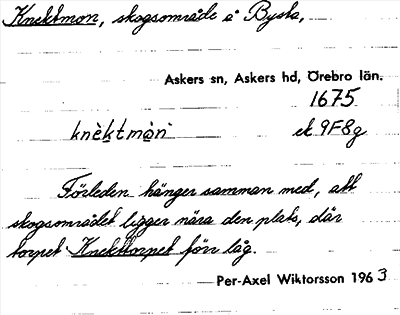 Knektmon, skogsområde å Bysta,
Askers sn, Askers hd, Örebro län.
1675
knèktmòn ek 9F8g
Förleden hänger samman med, att
skogsområdet ligger nära den plats, där
torpet Knekttorpet förr låg.
Per-Axel Wiktorsson 1963